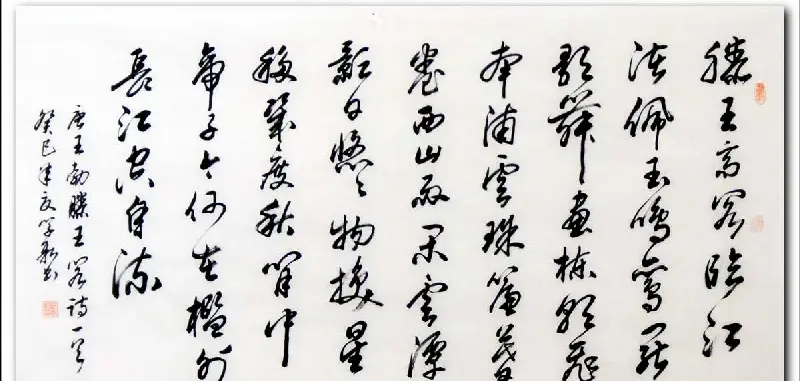 滕王高閣臨江
渚佩玉鳴鸞罷
歌舞畫棟朝飛
南浦雲珠簾暮
卷西山雨閑雲潭
影日悠悠物換星
移幾度秋閣中
帝子今何在檻外
長江空自流
唐王勃滕王閣詩一首
癸巳年夏書